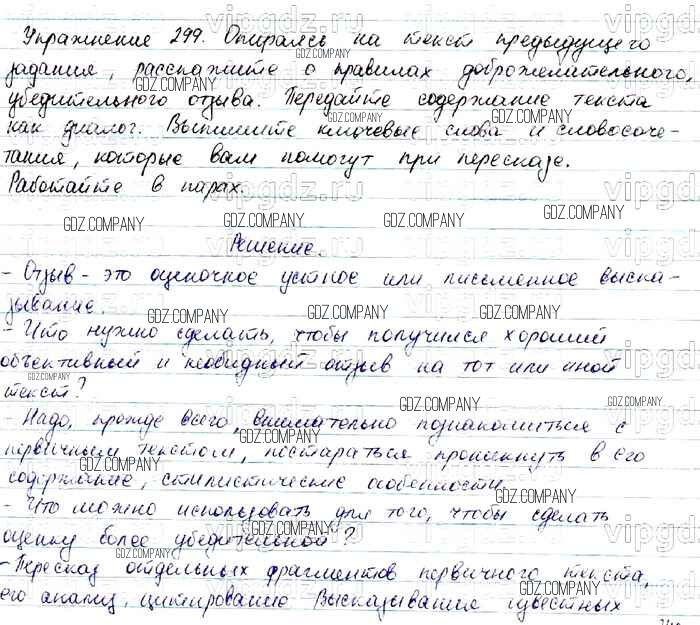 Упражнение 299. Опираясь на текст предыдущего
задания, расскажите о правилах доброжелательного,
убедительного отзыва. Передайте содержание текста
как диалог. Выпишите ключевые слова и словосоче-
тания, которые вам помогут при пересказе.
Работайте в парах.
Решение.
- Отзыв - это оценочное устное или письменное выска-
зывание.
- Что нужно сделать, чтобы получился хороший
объективный и необидный отзыв на тот или иной
текст?
- Надо, прежде всего, внимательно познакомиться с
первичным текстом, постараться проникнуть в его
содержание, стилистические особенности.
- Что можно использовать для того, чтобы сделать
оценку более убедительной?
- Пересказ отдельных фрагментов первичного текста,
его анализ, цитирование высказывания известных